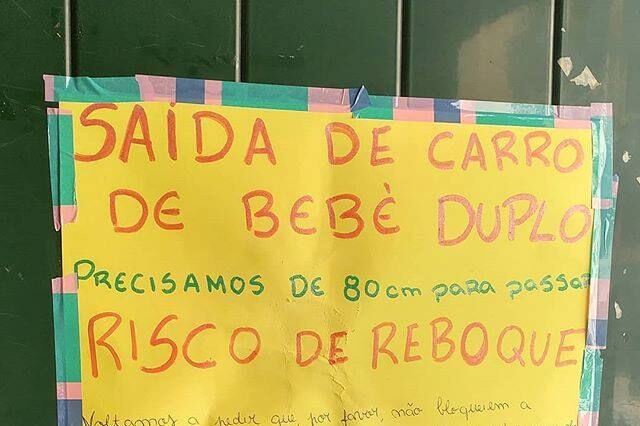 SAÍDA DE CARRO
DE BEBÈ DUPLO
PRECISAMOS DE 80cm para passar
RISCO DE REBOQUE
Voltamos a pedir que, por favor, não bloqueiem a